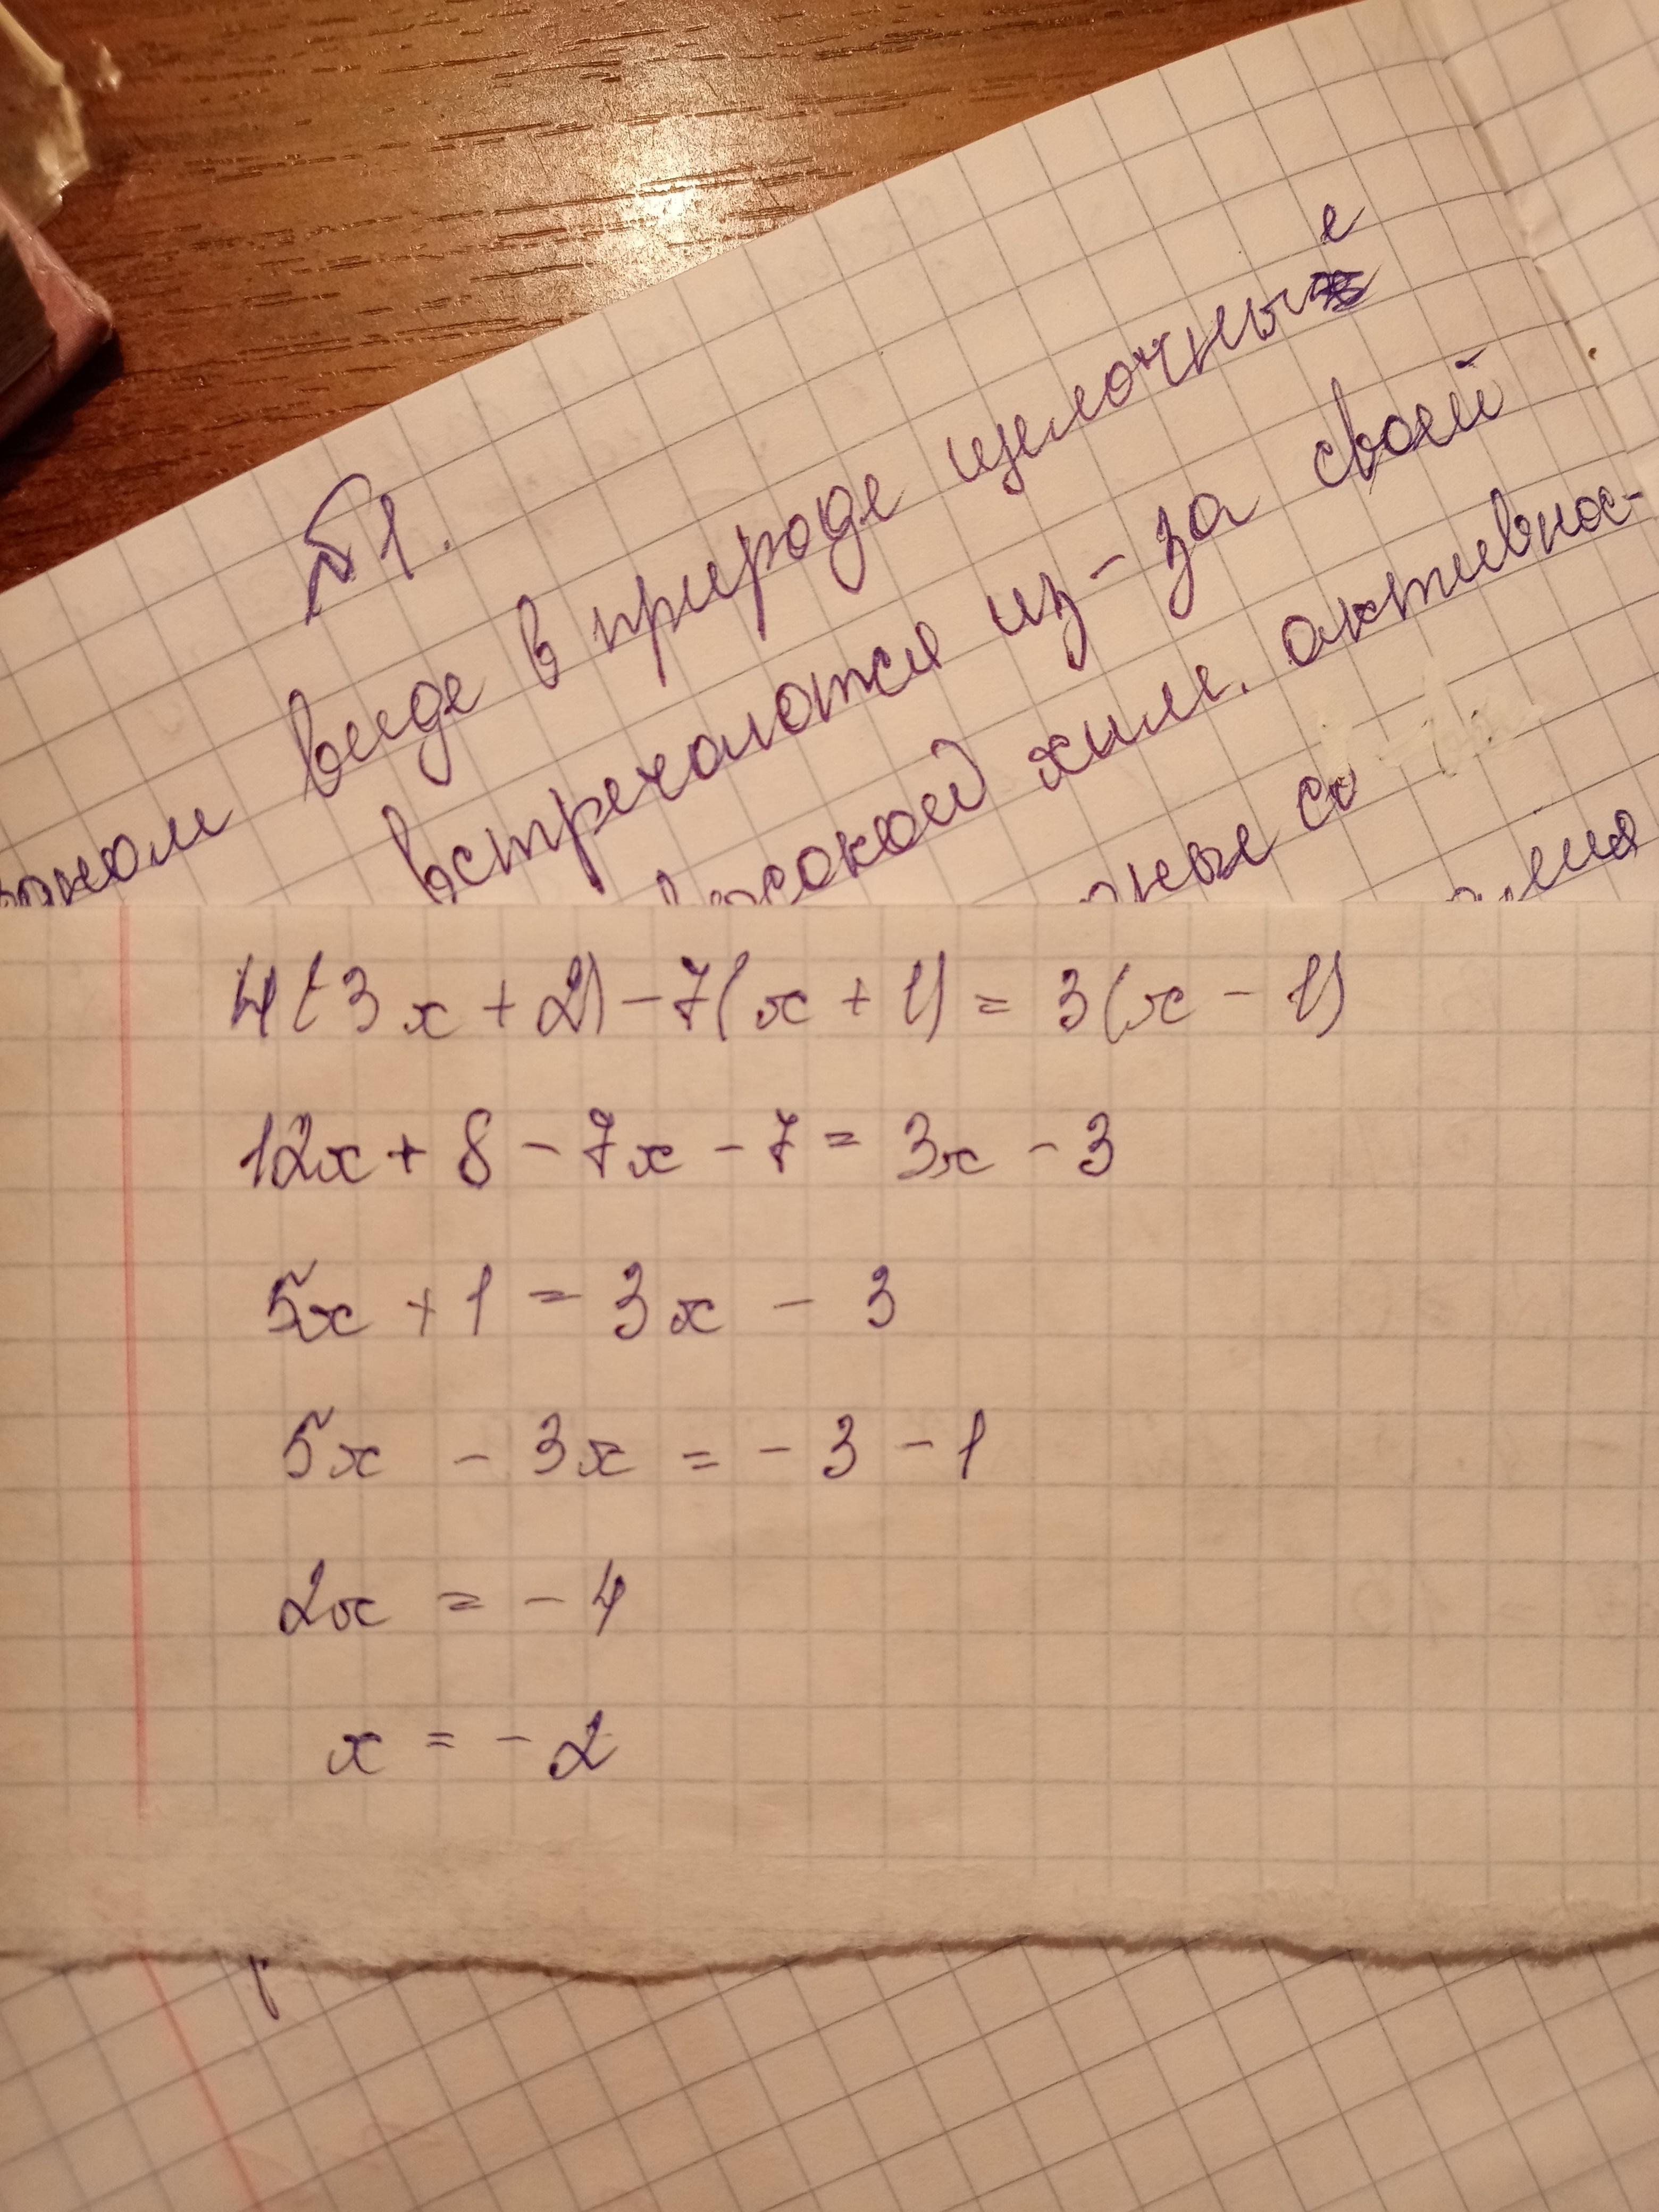 №1.
виде в природе щелочные
встречаются из-за своей
высокой хим. активнос-
4(3x + 2) - 7(x + 1) = 3(x - 1)
12x + 8 - 7x - 7 = 3x - 3
5x + 1 = 3x - 3
5x - 3x = - 3 - 1
2x = - 4
x = - 2